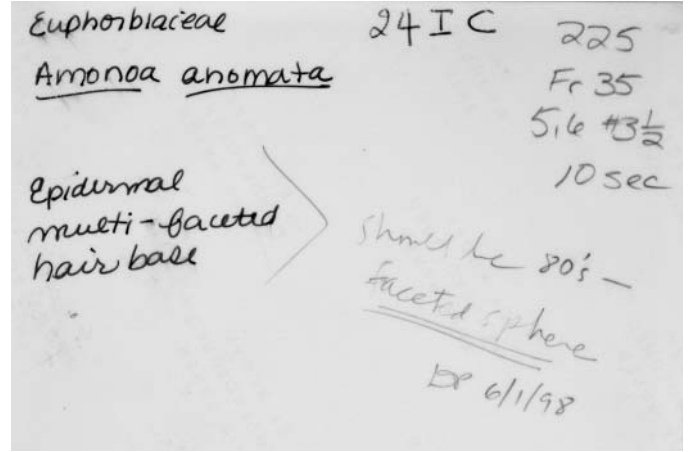 Euphorbiaceae
24 I C
225
Amonoa anomata
Fr 35
5,6 #3½
10 sec
Epidermal
multi-faceted
hair base
should be 80's —
faceted sphere
6/1/98